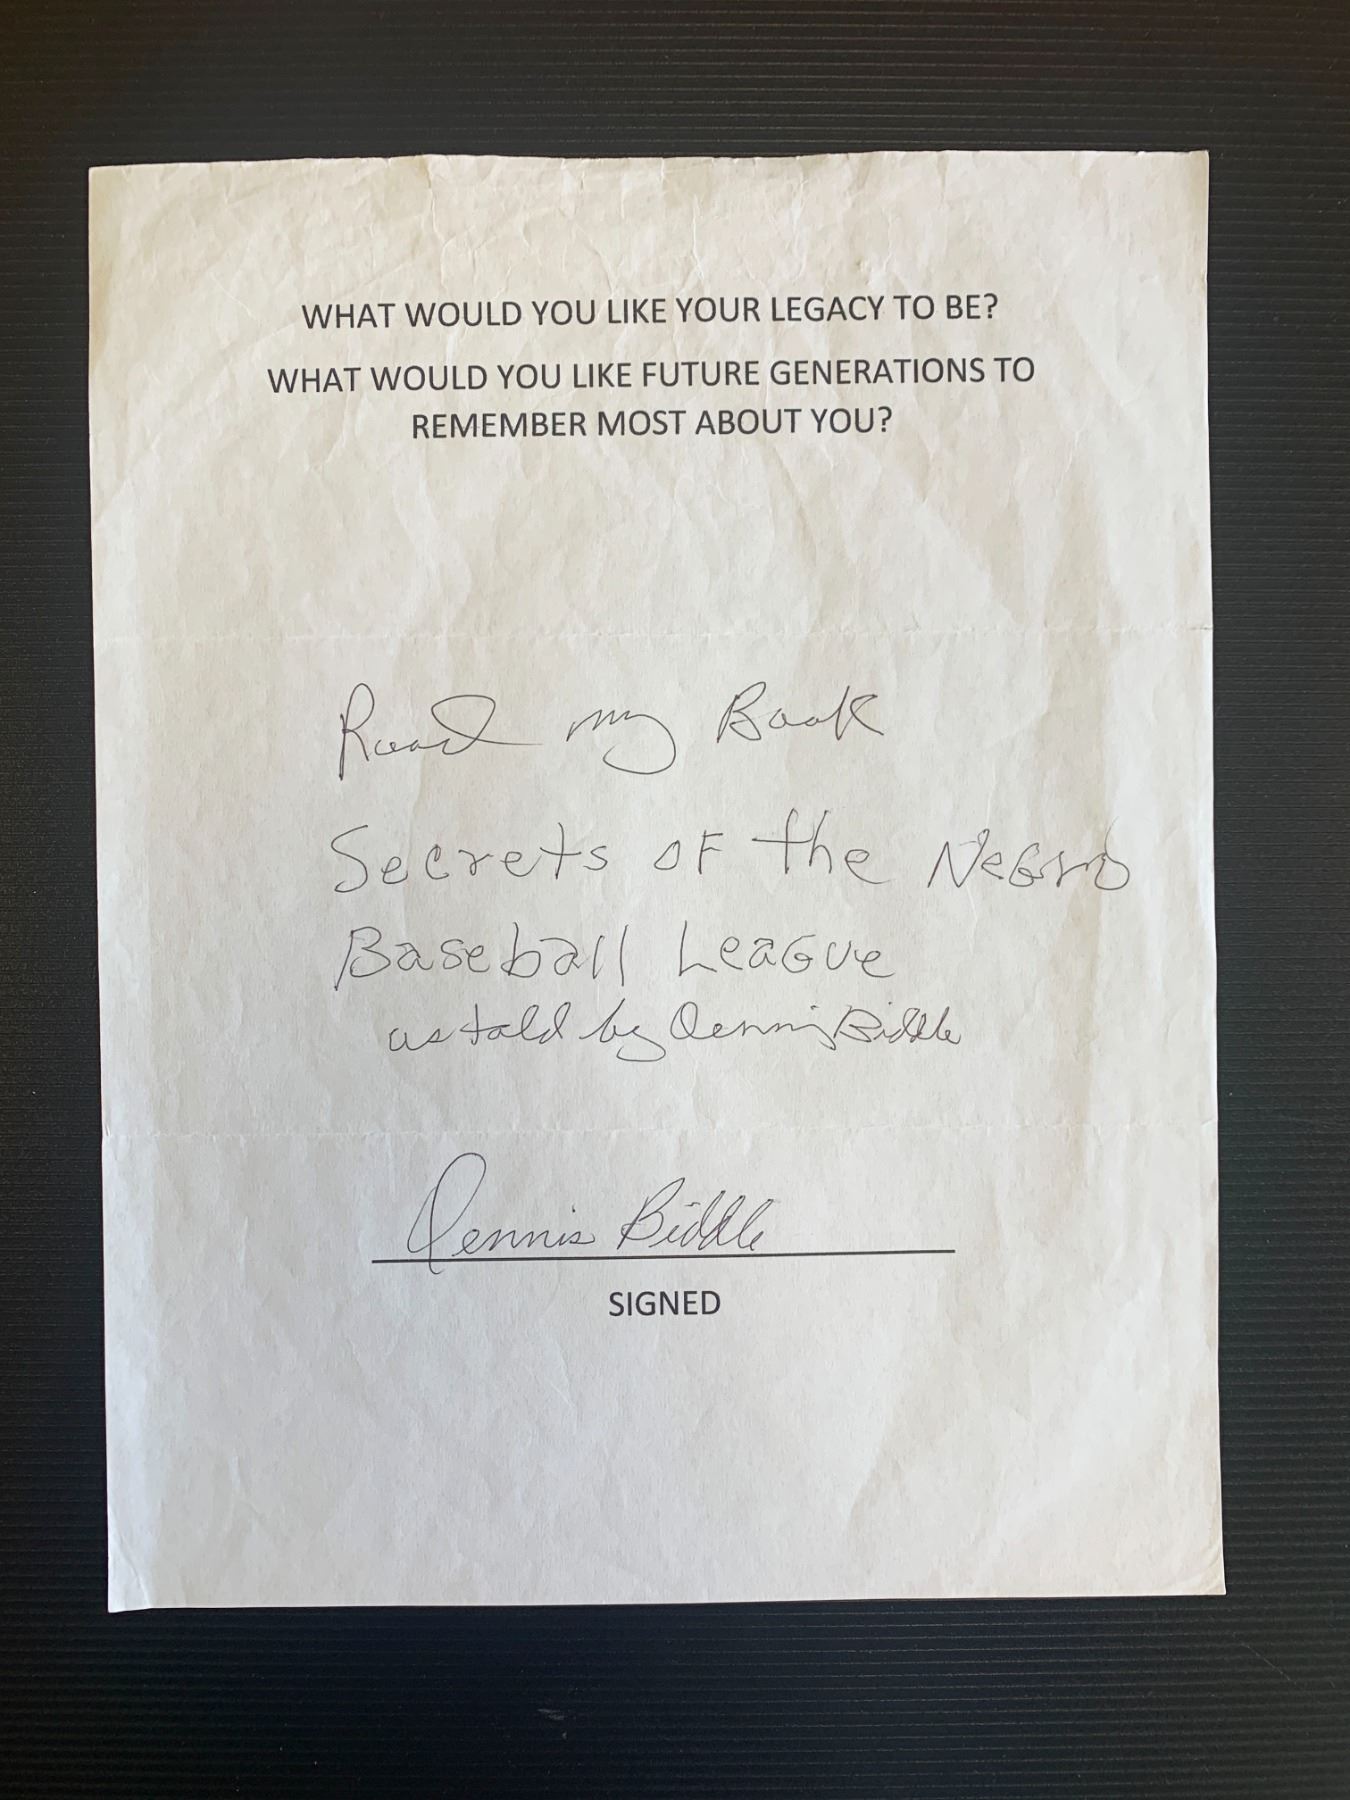 WHAT WOULD YOU LIKE YOUR LEGACY TO BE?
WHAT WOULD YOU LIKE FUTURE GENERATIONS TO
REMEMBER MOST ABOUT YOU?
Read my Book
Secrets OF the NeGro
Baseball LeaGue
as told by Dennis Biddle
Dennis Biddle
SIGNED